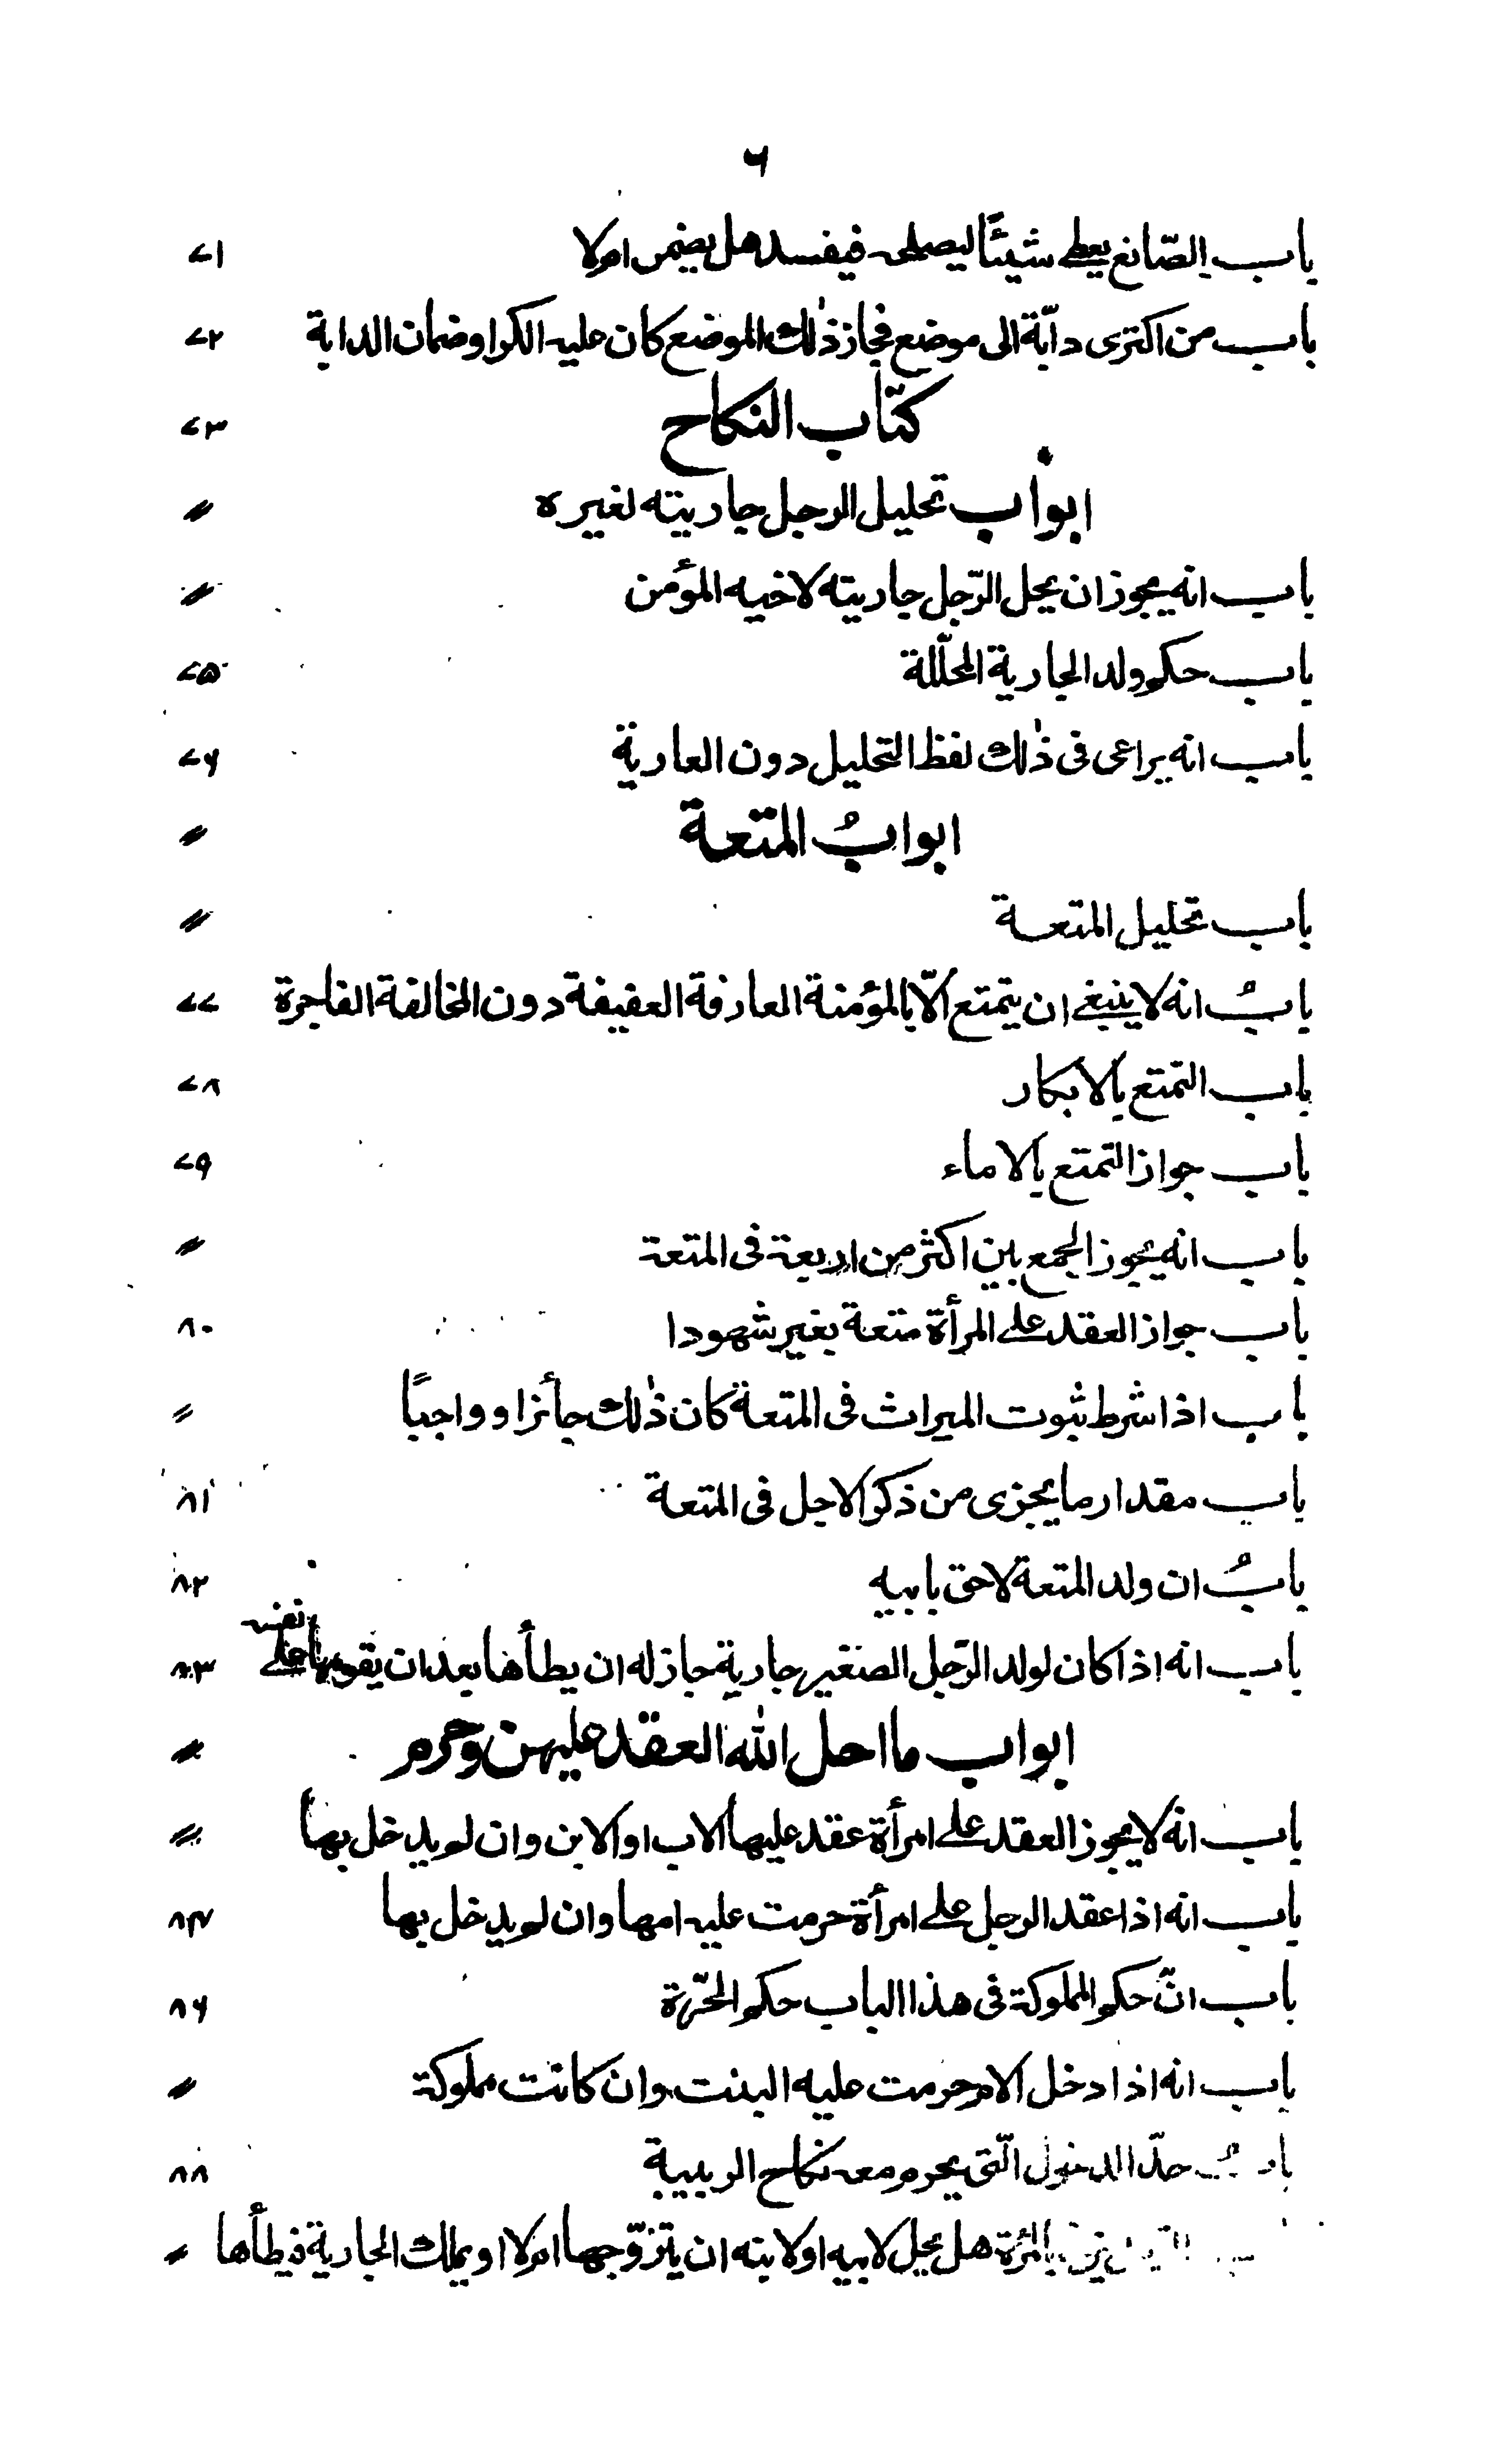 ۶
باب الصّانع يعطى شيئًا ليصلحه فيفسده هل يضمن ام لا ۷۱
باب من اكترى دابّة الى موضع فجاز ذٰلك الموضع كان عليه الكرا وضمان الدابة ۷۲
كتّاب النكاح ۷۳
ابواب تحليل الرجل جاريته لغيره 〃
باب انه يجوز ان يحل الرّجل جاريته لاخيه المؤمن 〃
باب حكم ولد الجارية المحلّلة ۷۵
باب انه يراعى فى ذٰلك لفظ التحليل دون العارية ۷۶
ابوابُ المتعة 〃
باب تحليل المتعة 〃
بابُ انه لا ينبغى ان يتمتع الّا بالمؤمنة العارفة العفيفة دون المخالفة الفاجرة ۷۷
باب التمتع بالابكار ۷۸
باب جواز التمتع بالاماء ۷۹
باب انه يجوز الجمع بين اكثر من اربعة فى المتعة 〃
باب جواز العقد على المرأة متعة بغير شهودا ۸۰
باب اذا شرط ثبوت الميراث فى المتعة كان ذٰلك جأئزا وواجبًا 〃
باب مقدار ما يجزى من ذكر الاجل فى المتعة ۸۱
بابُ ان ولد المتعة لاحق بابيه ۸۲
باب انه اذا كان لولد الرّجل الصغير جارية جاز له ان يطأها بعد ان يقومها على نفسه ۸۳
ابواب ما احل الله العقد عليهن وحرم 〃
باب انه لا يجوز العقد على امرأة عقد عليها الاب او الابن وان لم يدخل بها 〃
باب انه اذا عقد الرجل على امرأة حرمت عليه امها وان لم يدخل بها ۸۴
باب انّ حكم المملوكة فى هذا الباب حكم الحرّة ۸۶
باب انه اذا دخل الام حرمت عليه البنت وان كانت مملوكة 〃
بابُ حدّ الدخول الّتى يحرم معه نكاح الربيبة ۸۸
بالمرءة هل يحل لابيه او لابنه ان يتزوّجها ام لا او يملك الجارية فيطأها 〃